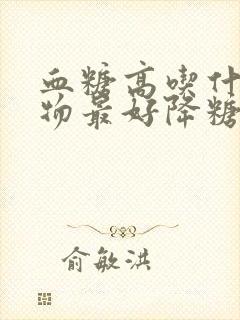 血糖高喫什
物最好降糖
俞敏洪